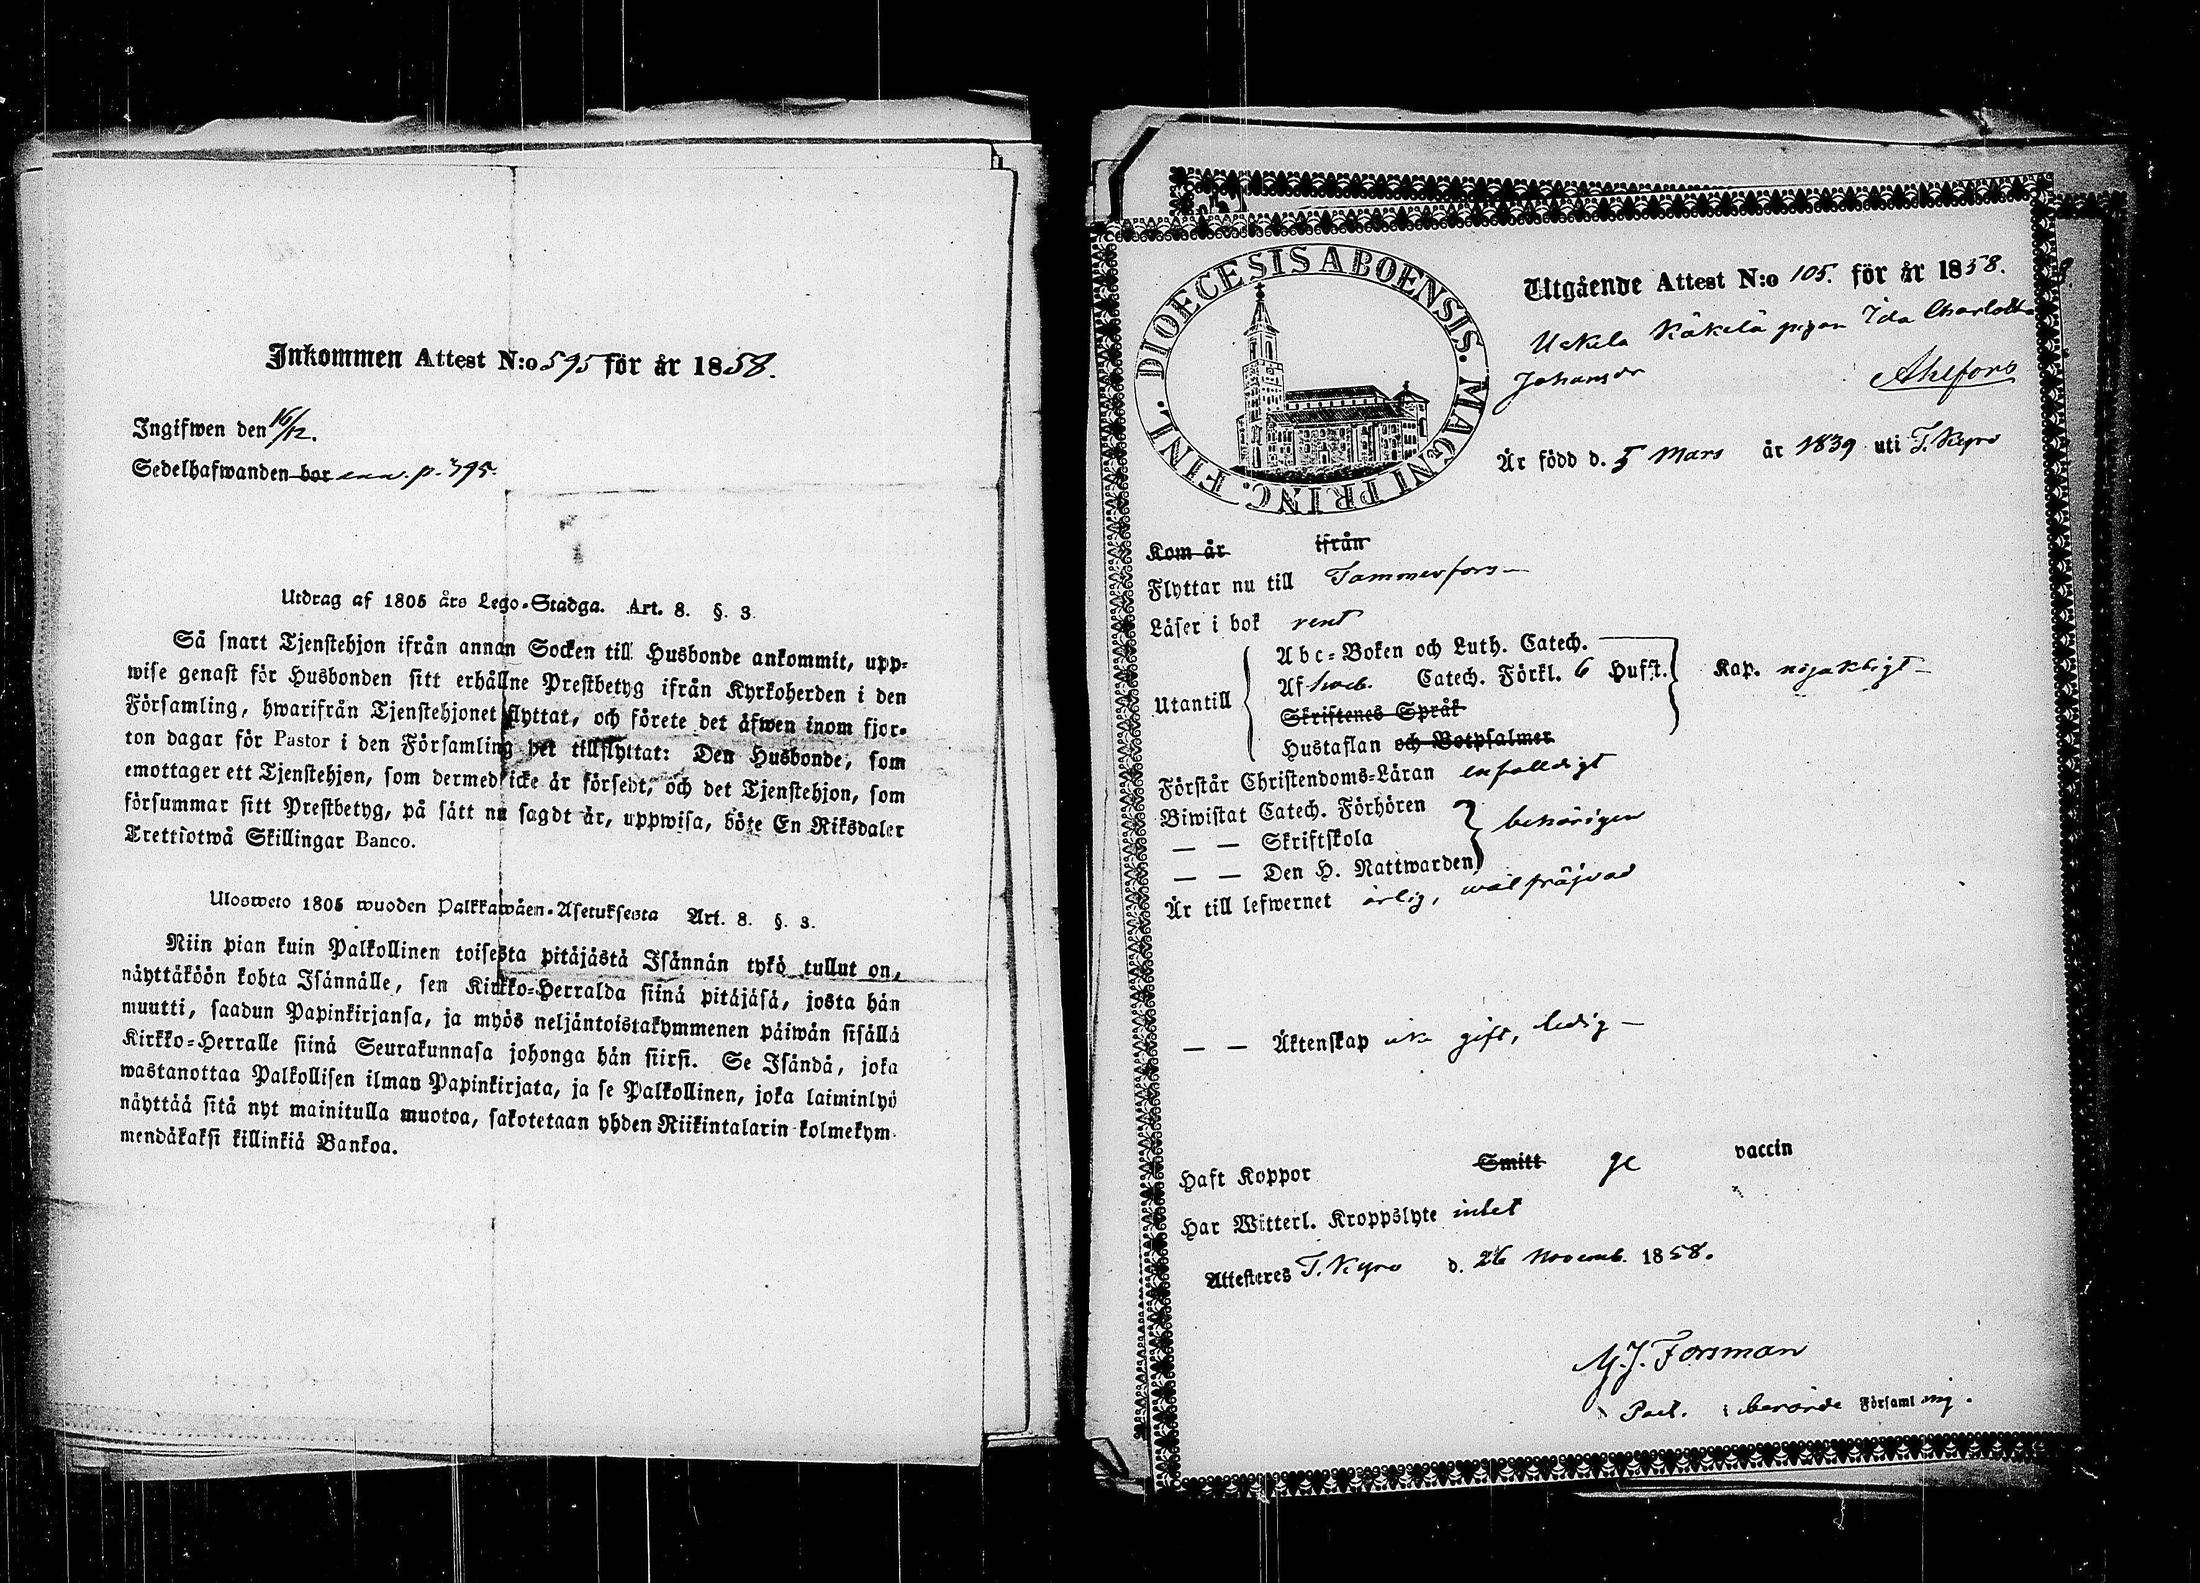 Inkommen Attest N:o 595 för år 1858.
Ingifwen den 16/12.
Sedelhafwanden bor enw. p. 395.
Utdrag af 1805 års Lego-Stadga. Art. 8. §. 3.
Så snart Tjenstehjon ifrån annan Socken till Husbonde ankommit, upp-
wise genast för Husbonden sitt erhållne Prestbetyg ifrån Kyrkoherden i den
Församling, hwarifrån Tjenstehjonet flyttat, och förete det äfwen inom fjor-
ton dagar för Pastor i den Församling det tillflyttat: Den Husbonde, som
emottager ett Tjenstehjon, som dermed icke är försedt, och det Tjenstehjon, som
försummar sitt Prestbetyg, på sätt nu sagdt är, uppwisa, böte En Riksdaler
Trettiotwå Skillingar Banco.
Ulosweto 1805 wuoden Palkkawäen-Asetuksesta Art. 8. §. 3.
Niin pian kuin Palkollinen toisesta pitäjästä Isännän tykö tullut on,
näyttäköön kohta Isännälle, sen Kirkko-Herralda siinä pitäjäsä, josta hän
muutti, saadun Papinkirjansa, ja myös neljäntoistakymmenen päiwän sisällä
Kirkko-Herralle siinä Seurakunnasa johonga hän siirsi. Se Isändä, joka
wastanottaa Palkollisen ilman Papinkirjata, ja se Palkollinen, joka laiminlyö
näyttää sitä nyt mainitulla muotoa, sakotetaan yhden Riikintalarin kolmekym-
mendäkaksi killinkiä Bankoa.
DIOECESIS ABOENSIS. MAGNI PRINC. FINL.
Utgående Attest N:o 105. för år 1858.
Uskela Käkelä pigan Ida Charlotta
Johansdr Ahlfors
Är född d. 5 Mars år 1839 uti T. Kyro
Kom år ifrån
Flyttar nu till Tammerfors
Läser i bok rent
Utantill
Abc-Boken och Luth. Catech.
Af Catech. Förkl. 6 Hufst. Kap. nöjaktigt
Skriftenes Språk
Hustaflan och Botpsalmer
Förstår Christendoms-Läran enfalldigt
Biwistat Catech. Förhören
— — Skriftskola behörigen
— — Den H. Nattwarden
Är till lefwernet ärlig, wälfräjdad
— — Äktenskap icke gift, ledig
Haft Koppor Smitt ge vaccin
Har Witterl. Kroppslyte intet
Attesteres T. Kyro d. 26 Novemb. 1858.
M. J. Forsman
Past. i berörde Församling.